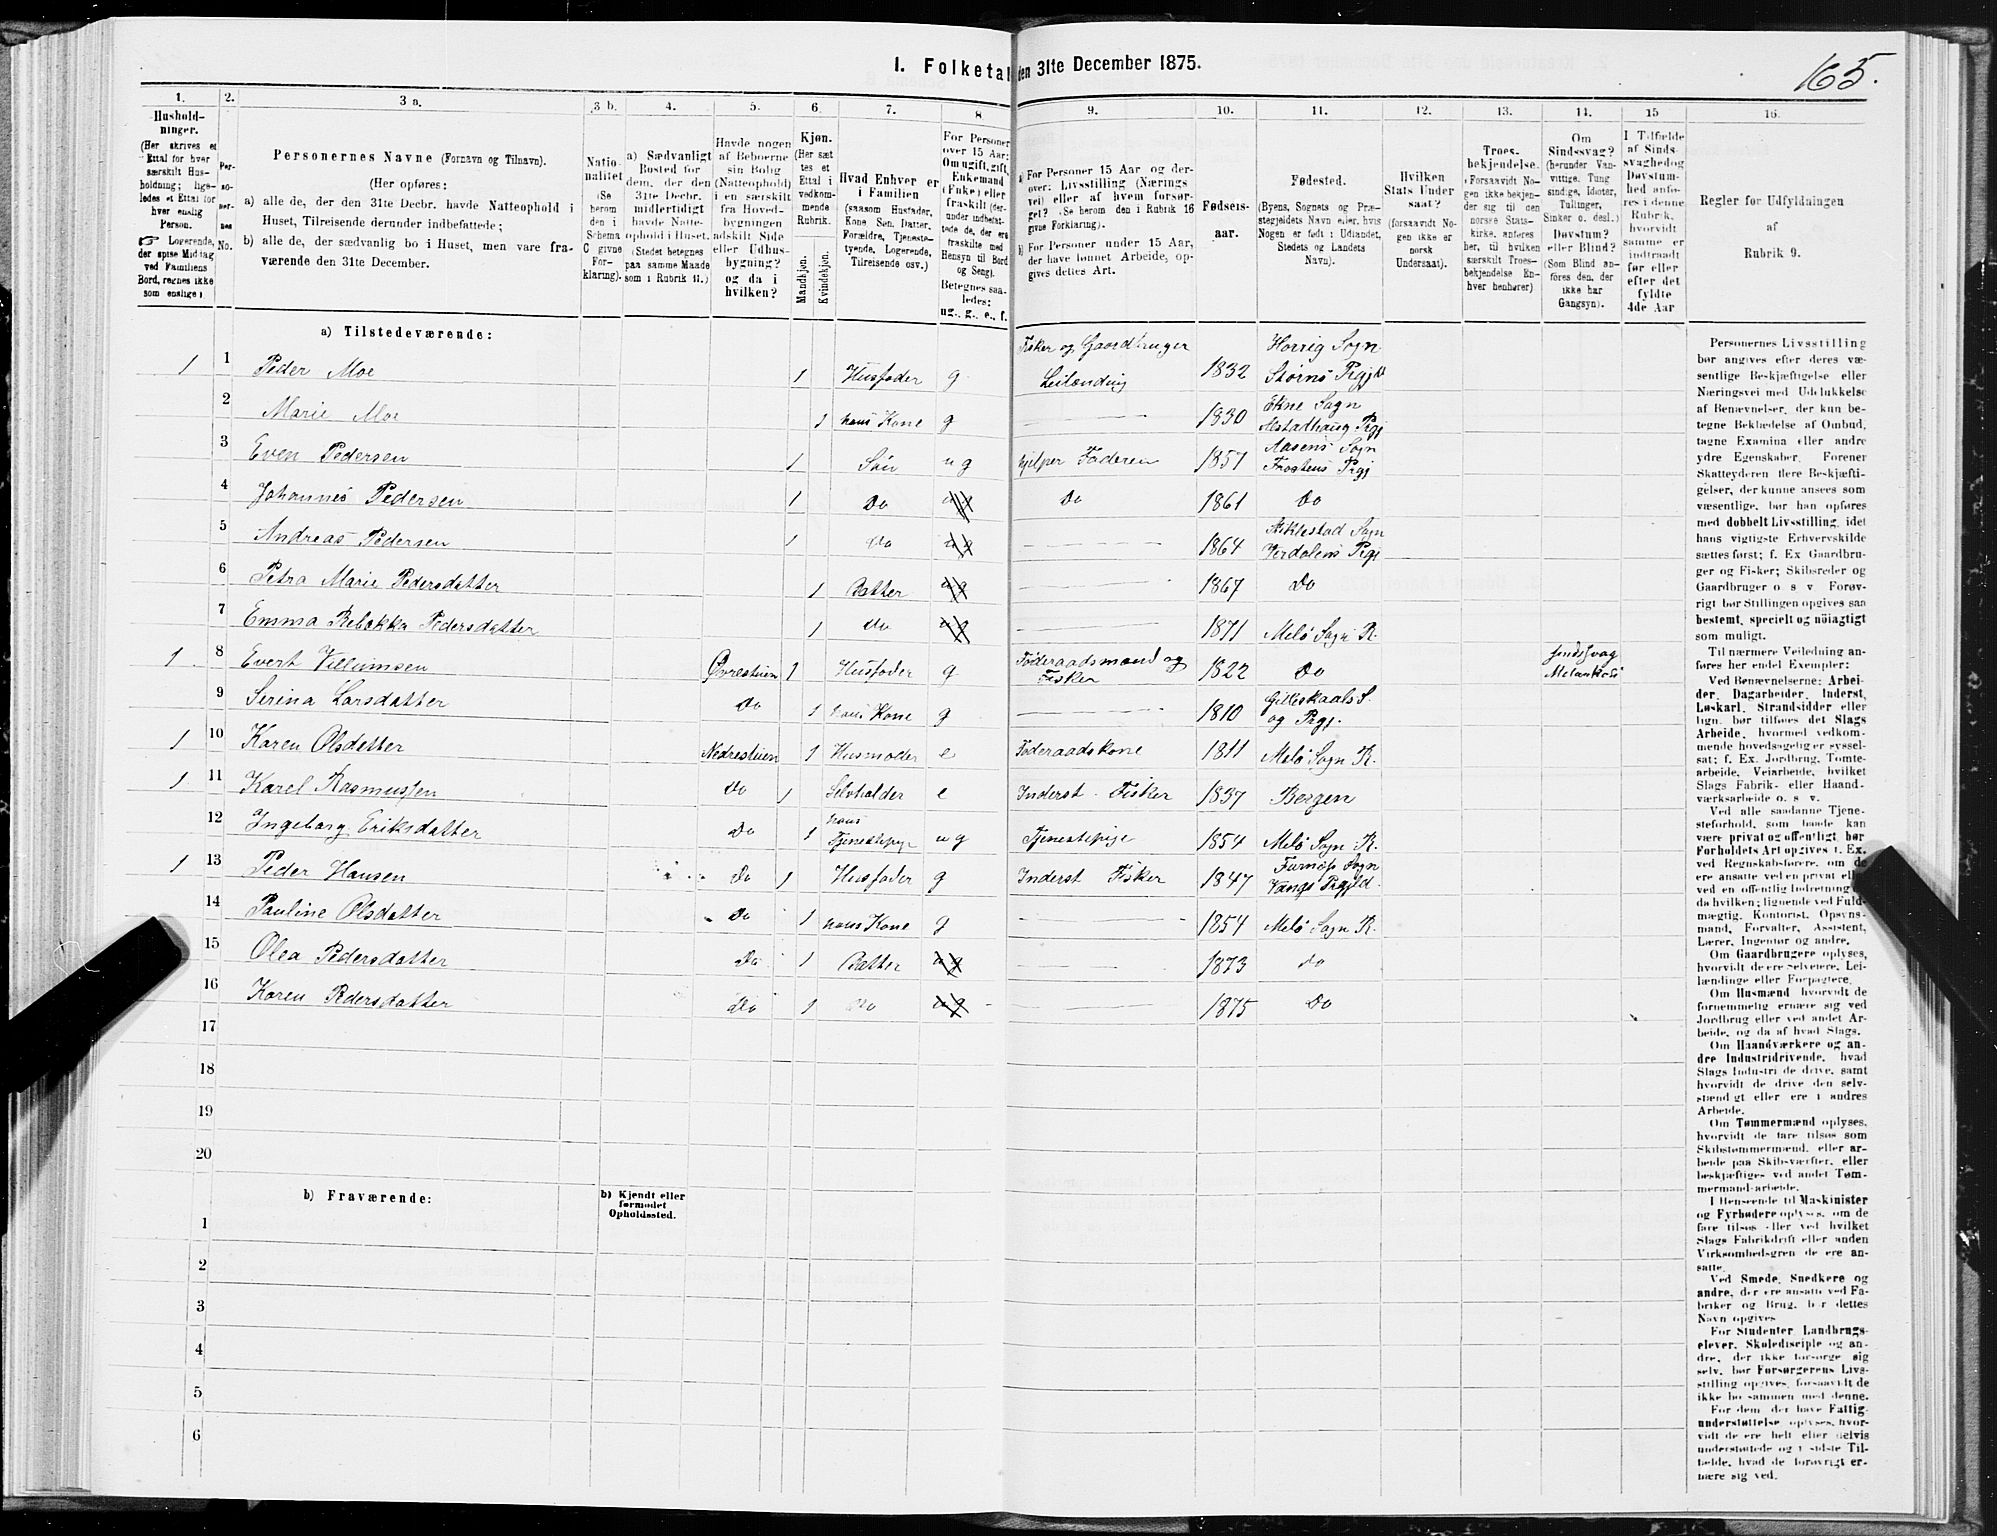 165.
I. Folketal den 31te December 1875.
1. 2. 3 a. 3 b. 4. 5. 6 7. 8 9. 10. 11. 12. 13. 14. 15 16.
Hushold-
ninger.
(Her skrives et
Ettal for hver
særskilt Hus-
holdning; lige-
ledes et Ettal for
hver enslig
Person.
☞ Logerende,
der spise Middag
ved Familiens
Bord, regnes ikke
som enslige).
Per-
so-
ner-
nes
No.
Personernes Navne (Fornavn og Tilnavn).
(Her opføres:
a) alle de, der den 31te Decbr. havde Natteophold i
Huset, Tilreisende derunder indbefattede;
b) alle de, der sædvanlig bo i Huset, men vare fra-
værende den 31te December.
Natio-
nalitet
(Se
herom
den i
Schema
C givne
For-
klaring).
a) Sædvanligt
Bosted for
dem, der den
31te Decbr.
midlertidigt
havde Natte-
ophold i Huset.
(Stedet betegnes
paa samme Maade
som i Rubrik 11.)
Havde nogen
af Beboerne
sin Bolig
(Natteophold)
i en særskilt
fra Hoved-
bygningen
adskilt Side
eller Udhus-
bygning?
og da i
hvilken?
Kjøn.
(Her sæt
tes et
Ettal i
vedkom-
mende
Rubrik.
Mandkjøn.
Kvindekjøn.
Hvad Enhver er
i Familien
(saasom Husfader,
Kone, Søn, Datter,
Forældre, Tjeneste-
tyende, Logerende,
Tilreisende osv.)
For Personer
over 15 Aar:
Om ugift, gift,
Enkemand
(Enke) eller
fraskilt (der-
under indbefat-
tede de, der ere
fraskilte med
Hensyn til Bord
og Seng).
Betegnes saa-
ledes:
ug., g., e., f.
a) For Personer 15 Aar og der-
over: Livsstilling (Nærings
vei) eller af hvem forsør-
get? (Se herom den i Rubrik 16
givne Forklaring).
b) For Personer under 15 Aar,
der have lønnet Arbeide, op-
gives dettes Art.
Fødsels-
aar.
Fødested.
(Byens, Sognets og Præ-
stegjeldets Navn eller, hvis
Nogen er født i Udlandet,
Stedets og Landets
Navn).
Hvilken
Stats Under
saat?
(forsaavidt No-
gen ikke er
norsk
Undersaat).
Troes-
bekjendelse.
(Forsaavidt No-
gen ikke bekjen-
der sig til den
norske Stats-
kirke, anføres
her, til hvilken
særskilt Troes-
bekjendelse En-
hver henhører)
Om
Sindssvag?
(herunder Van-
vittige, Tung
sindige, Idioter,
Tullinger,
Sinker o. desl.)
Døvstum?
eller Blind?
(Som Blind an-
føres den, der
ikke har
Gangsyn).
I Tilfælde
af Sinds-
svaghedog
Døvstum-
hed anfø-
res i denne
Rubrik,
hvorvidt
samme er
indtraadt
før eller
efter det
fyldte
4de Aar
Regler for Udfyldningen
af
Rubrik 9.
a) Tilstedeværende:
1 1 Peder Moe 1 Husfader g Fisker og Gaardbruger Leilænding 1832 Horrig Sogn Størns Prgjld
2 Marie Moe 1 hans Kone g 1830 Ekne Sogn Alstadhaug Prgj
3 Even Pedersen 1 Søn ug hjelper Faderen 1857 Aasens Sogn Frostens Prgj
4 Johannes Pedersen 1 Do ug Do 1861 Do
5 Andreas Pedersen 1 Do ug 1864 Stiklestad Sogn Verdalens Prgj
6 Petra Marie Pedersdatter 1 Datter ug 1867 Do
7 Emma Rebekka Pedersdatter 1 Do ug 1871 Melö Sogn R.
1 8 Evert Villumsen Øvrestuen 1 Husfader g Föderaadsmand og Fisker 1822 Do sindssvag Melankoli
9 Serina Larsdatter Do 1 hans Kone g 1810 Gilleskaals S. og Prgj.
1 10 Karen Olsdatter Nedrestuen 1 Husmoder e Föderaadskone 1811 Melö Sogn R.
1 11 Karel Rasmussen Do 1 Selvholder e Inderst - Fisker 1837 Bergen
12 Ingeborg Eriksdatter Do 1 hans Tjenestepige ug Tjenestepige 1854 Melö Sogn R.
1 13 Peder Hansen Do 1 Husfader g Inderst Fisker 1847 Furnæs Sogn Vangs Prgjld.
14 Pauline Olsdatter Do 1 hans Kone g 1854 Melö Sogn R.
15 Olea Pedersdatter Do 1 Datter ug 1873 do
16 Karen Pedersdatter Do 1 Do ug 1875 Do
17
18
19
20
b) Fraværende:
b) Kjendt eller
formodet
Opholdssted.
1
2
3
4
5
6
Personernes Livsstilling
bør angives efter deres væ-
sentlige Beskjæftigelse eller
Næringsvei med Udelukkelse
af Benævnelser, der kun be-
tegne Beklædelse af Ombud,
tagne Examina eller andre
ydre Egenskaber. Forener
Skatteyderen flere Beskjæfti-
gelser, der kunne ansees som
væsentlige, bør han opføres
med dobbelt Livsstilling, idet
hans vigtigste Erhvervskilde
sættes først; f. Ex Gaardbru-
ger og Fisker; Skibsreder og
Gaardbruger o s v Forøv-
rigt bør Stillingen opgives saa
bestemt, specielt og nöiagtigt
som muligt.
Til nærmere Veiledning an-
føres her endel Exempler:
Ved Benævnelserne: Arbei-
der, Dagarbeider, Inderst,
Løskarl, Strandsidder eller
lign. bør tilføies det Slags
Arbeide, hvormed vedkom-
mende hovedsagelig er syssel-
sat; f. Ex. Jordbrug, Tomte-
arbeide, Veiarbeide, hvilket
Slags Fabrik- eller Haand-
værksarbeide o. s. v.
Ved alle saadanne Tjene-
steforhold, som baade kan
være privat og offentligt, bør
Forholdets Art opgives, f. Ex.
ved Regnskabsførere, om de
ere ansatte ved en privat eller
ved en offentlig Indretning og
da hvilken; lignende ved Fuld-
mægtig, Kontorist, Opsyns-
mand, Forvalter, Assistent,
Lærer, Ingeniør og andre.
Om Gaardbrugere oplyses,
hvorvidt de ere Selveiere, Lei-
lændinge eller Forpagtere.
Om Husmænd hvorvidt de
fornemmelig ernære sig ved
Jordbrug eller ved andet Ar-
beide, og da af hvad Slags.
Om Haandværkere og an-
dre Industridrivende, hvad
Slags Industri de drive, samt
hvorvidt de drive den selv-
stændigt eller ere i andres
Arbeide.
Om Tømmermænd oplyses,
hvorvidt de fare tilsøs som
Skibstømmermænd, eller ar-
beide paa Skibsværfter, eller
beskjæftiges ved andet Tøm-
mermand-arbeide.
I Henseende til Maskinister
og Fyrbødere oplyses, om de
fare tilsøs eller ved hvilket
Slags Fabrikdrift eller anden
Virksomhedsgren de ere an-
satte.
Ved Smede, Snedkere og
andre, der ere ansatte ved Fa-
briker og Brug, bør dettes
Navn opgives
For Studenter, Landbrugs-
elever, Skoledisciple og an-
dre, der ikke forsørge sig
selv, bør Forsørgerens Livs-
stilling opgives, forsaavidt de
ikke bo sammen med denne.
For dem, der have Fattig-
understøttelse, oplyses, hvor-
vidt de ere helt eller delvis
understøttede og i sidste Til-
fælde, hvad de forøvrigt er-
nære sig ved.